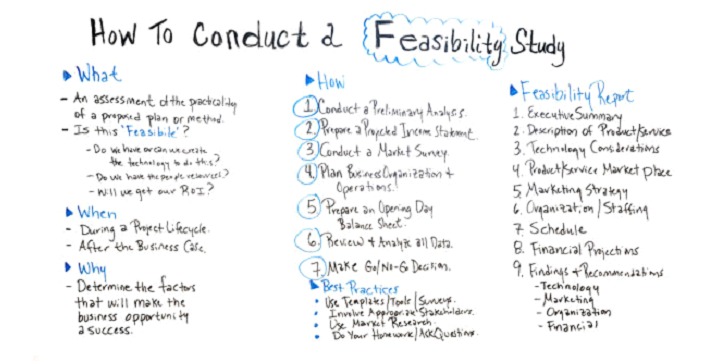 How To Conduct a Feasibility Study
What
- An assessment of the practicality
of a proposed plan or method.
- Is this 'Feasibile'?
- Do we have or can we create
the technology to do this?
- Do we have the people resources?
- Will we get our ROI?
When
- During a Project Lifecycle.
- After the Business Case.
Why
- Determine the factors
that will make the
business opportunity
a success.
How
1. Conduct a Preliminary Analysis.
2. Prepare a Projected Income Statement.
3 Conduct a Market Survey.
4. Plan Business Organization +
Operations.
5 Prepare an Opening Day
Balance Sheet.
6. Review + Analyze all Data.
7. Make Go/No-Go Decision.
Best Practices
• Use Templates/Tools/Surveys.
• Involve Appropriate Stakeholders.
• Use Market Research.
• Do Your Homework/Ask Questions.
Feasibility Report
1. Executive Summary
2. Description of Product/Service
3. Technology Considerations
4. Product/Service Market place
5. Marketing Strategy
6. Organization/Staffing
7. Schedule
8. Financial Projections
9. Findings + Recommendations
- Technology
- Marketing
- Organization
- Financial